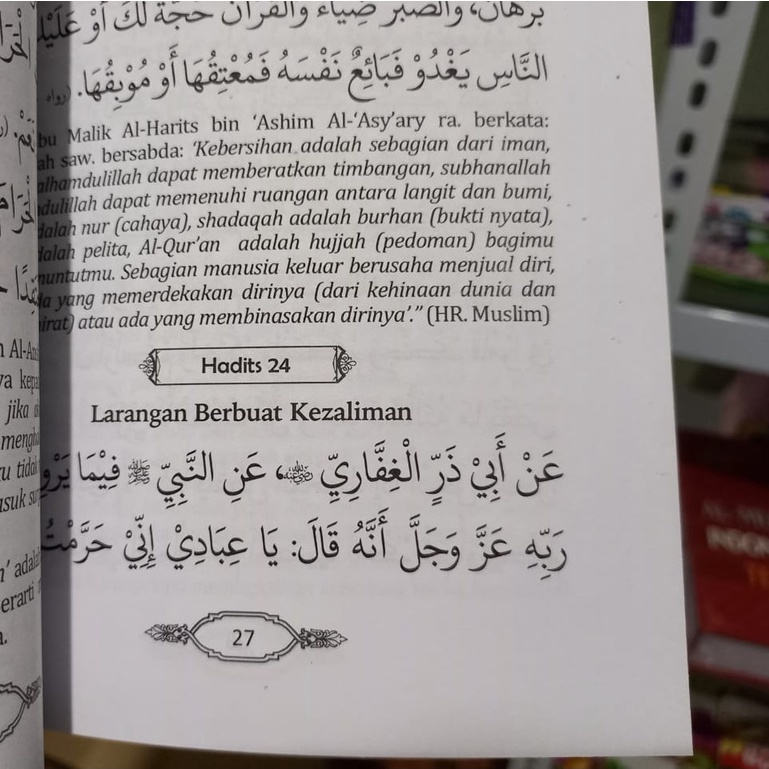 برهان، والصبر ضياء والقرآن حجة لك أو
النَّاسِ يَغْدُوْ فَبَائِعٌ نَفْسَهُ فَمُعْتِقُهَا أَوْ مُوْبِقُهَا. (رواه
Malik Al-Harits bin ‘Ashim Al-‘Asy’ary ra. berkata:
saw. bersabda: ‘Kebersihan adalah sebagian dari iman,
alhamdulillah dapat memberatkan timbangan, subhanallah
dapat memenuhi ruangan antara langit dan bumi,
nur (cahaya), shadaqah adalah burhan (bukti nyata),
pelita, Al-Qur’an adalah hujjah (pedoman) bagimu
Sebagian manusia keluar berusaha menjual diri,
yang memerdekakan dirinya (dari kehinaan dunia dan
atau ada yang membinasakan dirinya’.” (HR. Muslim)
Hadits 24
Larangan Berbuat Kezaliman
عَنْ أَبِيْ ذَرٍّ الْغِفَّارِيِّ ﵁، عَنِ النَّبِيِّ ﷺ فِيْمَا
رَبِّهِ عَزَّ وَجَلَّ أَنَّهُ قَالَ: يَا عِبَادِيْ إِنِّيْ حَرَّمْتُ
27